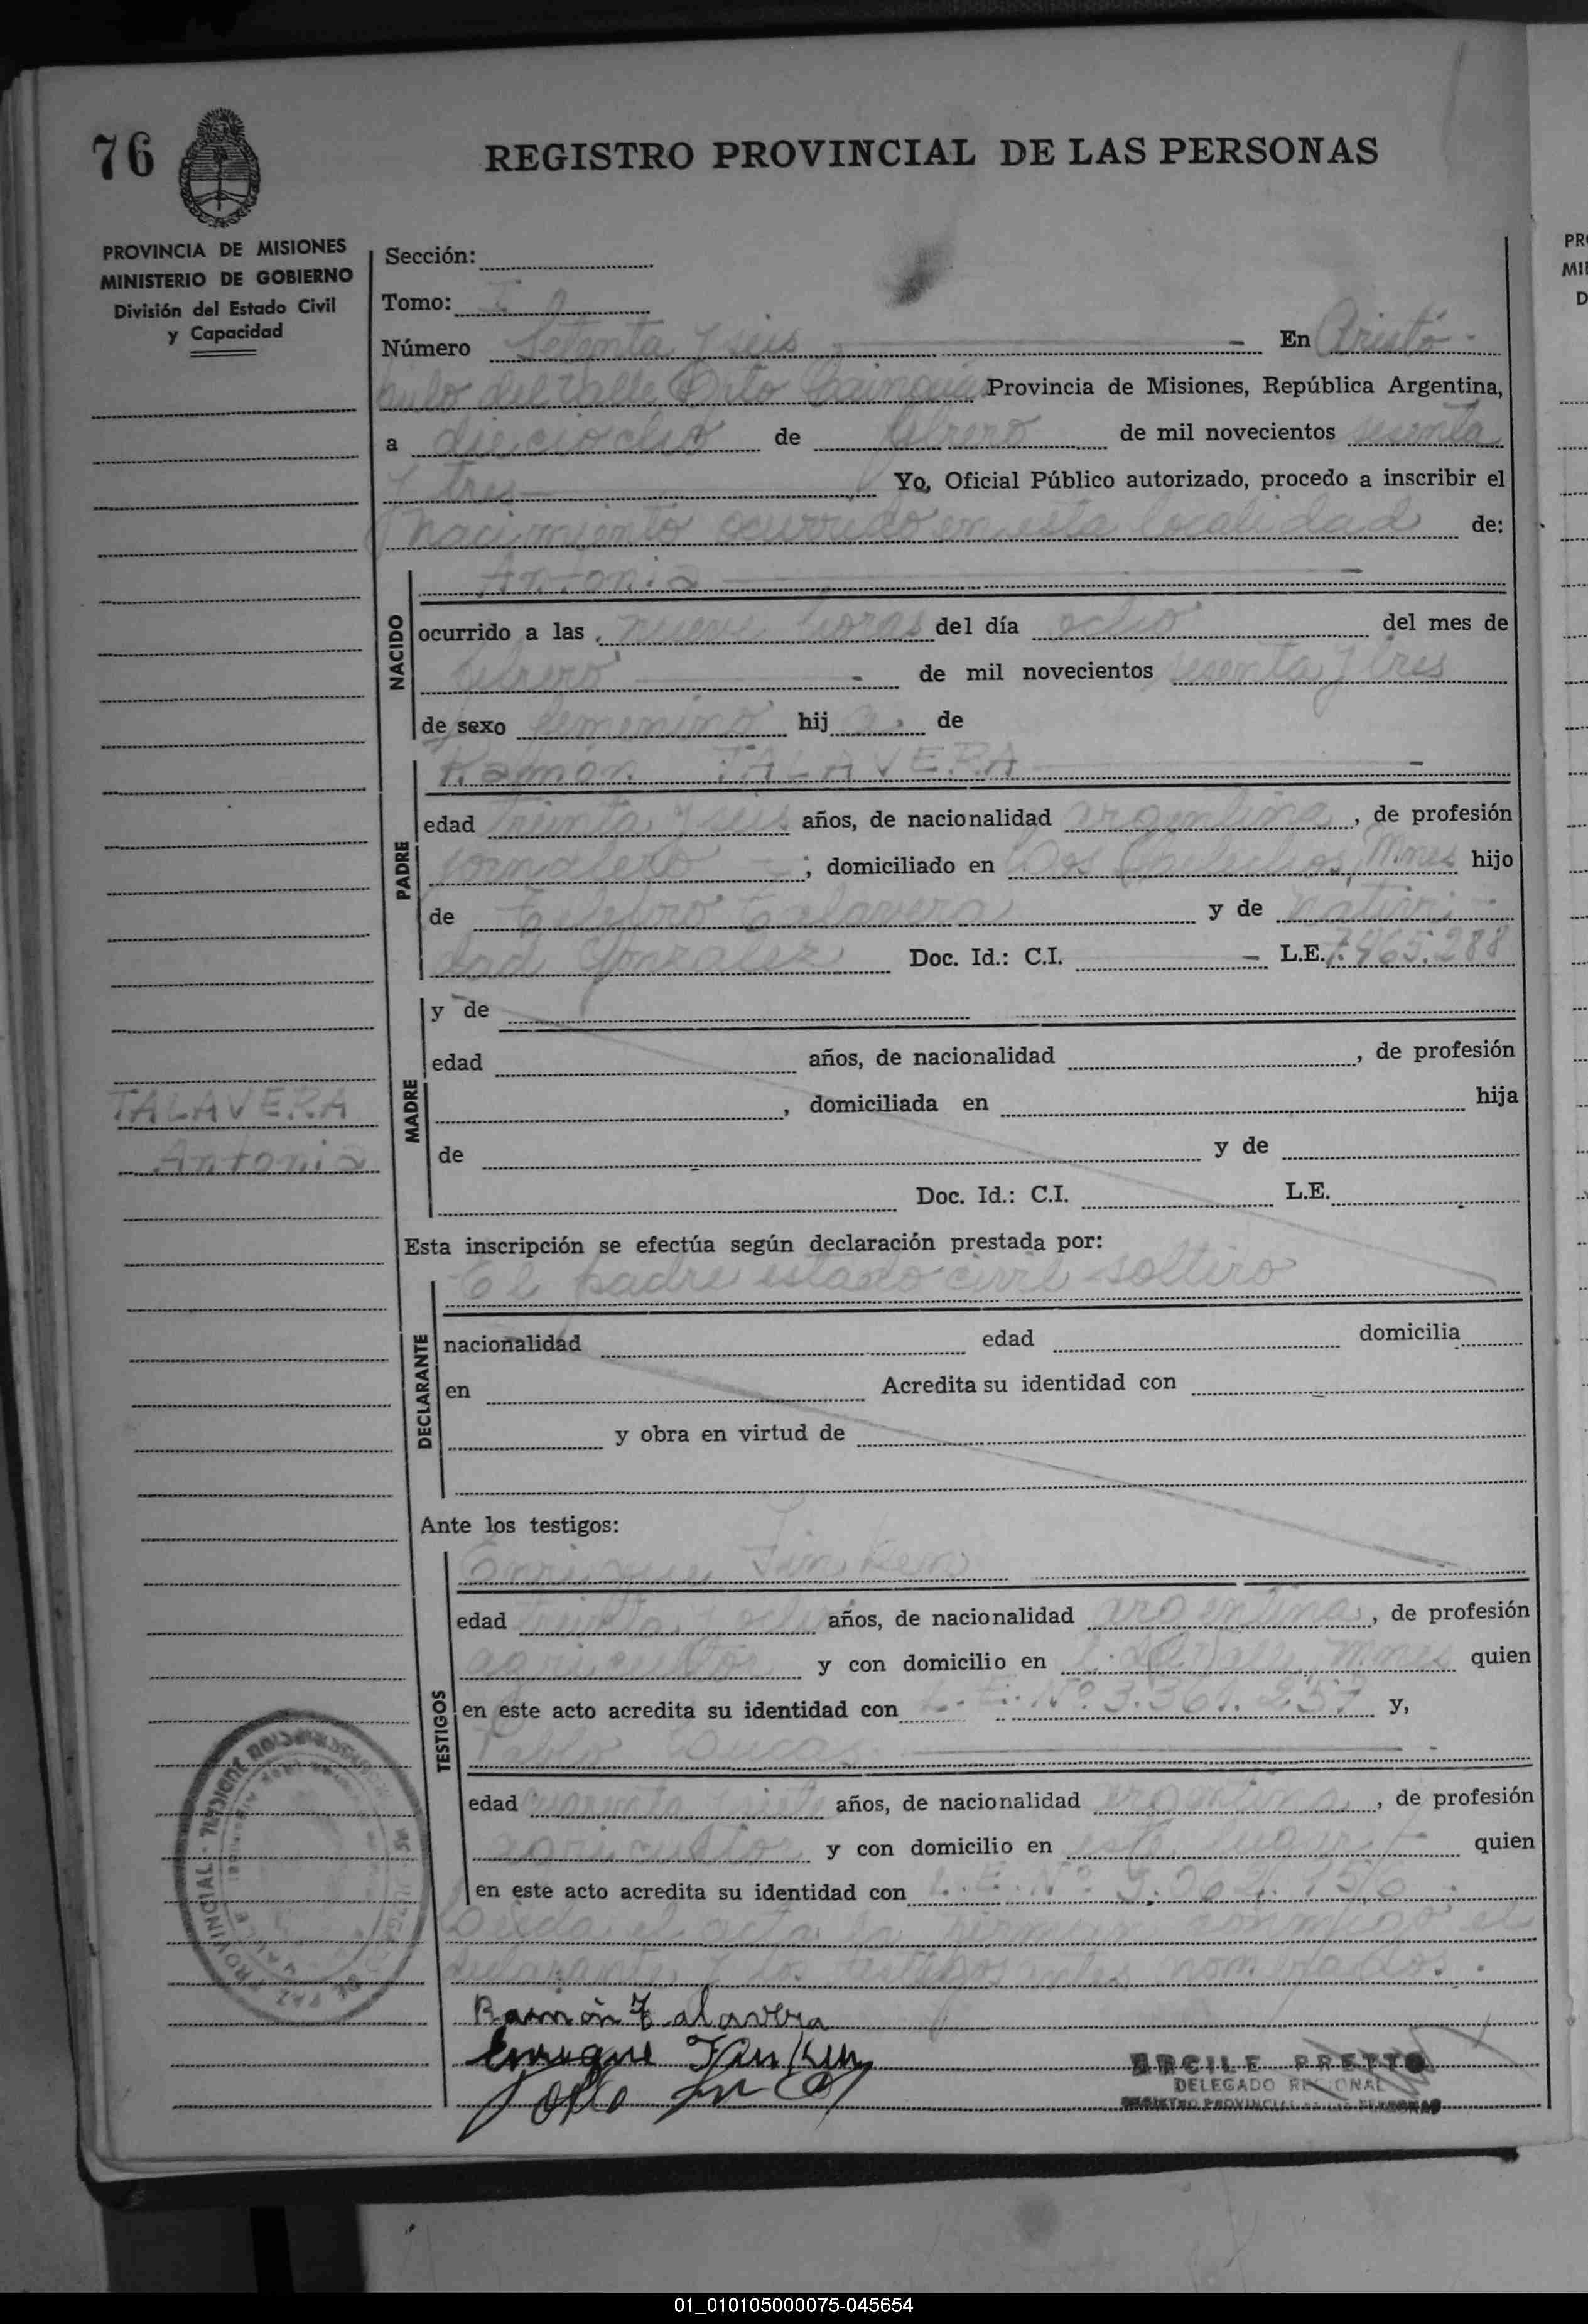 76
REGISTRO PROVINCIAL DE LAS PERSONAS
PROVINCIA DE MISIONES
MINISTERIO DE GOBIERNO
División del Estado Civil
y Capacidad
Sección:
Tomo: I
Número Setenta y seis En Aristó-
bulo del Valle Dpto Cainguás Provincia de Misiones, República Argentina,
a dieciocho de febrero de mil novecientos sesenta
y tres Yo, Oficial Público autorizado, procedo a inscribir el
nacimiento ocurrido en esta localidad de:
NACIDO
Antonia
ocurrido a las nueve horas del día ocho del mes de
febrero de mil novecientos sesenta y tres
de sexo femenino hija de
PADRE
Ramón TALAVERA
edad treinta y seis años, de nacionalidad argentina, de profesión
jornalero; domiciliado en Dos Mnes hijo
de Talavera y de Nativi-
dad Gonzalez Doc. Id.: C.I. - L.E. 7.465.288
MADRE
y de
edad años, de nacionalidad , de profesión
, domiciliada en hija
de y de
Doc. Id.: C.I. L.E.
TALAVERA
Antonia
Esta inscripción se efectúa según declaración prestada por:
DECLARANTE
El padre estado civil soltero
nacionalidad edad domicilia
en Acredita su identidad con
y obra en virtud de
Ante los testigos:
TESTIGOS
Enrique Tinken
edad treinta y ocho años, de nacionalidad argentina, de profesión
agricultor y con domicilio en A. del Valle Mnes quien
en este acto acredita su identidad con L.E. Nº 3.361.257 y,
Pablo
edad cuarenta y siete años, de nacionalidad argentina, de profesión
agricultor y con domicilio en este lugar quien
en este acto acredita su identidad con L.E. Nº
Leida el acta la firman conmigo el
declarante y los testigos antes nombrados.
Ramón Talavera
Enrique Tinken
ERCILE PRETTO
DELEGADO REGIONAL
REGISTRO PROVINCIAL DE LAS PERSONAS
01_010105000075-045654